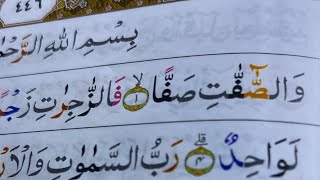 ٤٤٦
بِسْمِ اللهِ الرَّحْمٰ
وَالصّٰٓفّٰتِ صَفًّا ۙ ١ فَالزّٰجِرٰتِ زَجْرً
لَوَاحِدٌ ۗ ٤ رَبُّ السَّمٰوٰتِ وَالْاَرْ